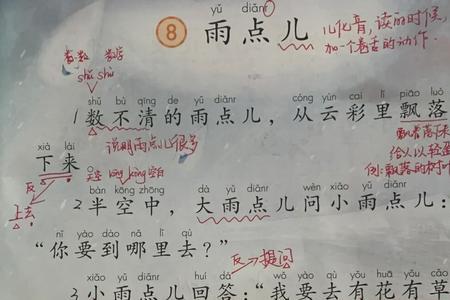 yǔ diǎn
8 雨点儿
儿化音，读的时候，
加一个卷舌的动作.
shǔ shù
shǔ bù qīng de yǔ diǎnr cóng yún cai lǐ piāo luò
1 数不清的雨点儿，从云彩里飘落
说明雨点儿很多
飘着落下来
xià lái
下来
给人以轻盈
例：飘落的树叶
kōng kòng 空白
反
上去
bàn kōng zhōng dà yǔ diǎnr wèn xiǎo yǔ diǎnr
2 半空中，大雨点儿问小雨点儿：
nǐ yào dào nǎ lǐ qù
“你要到哪里去？”
反→提问
xiǎo yǔ diǎnr huí dá wǒ yào qù yǒu huā yǒu cǎo
3 小雨点儿回答：“我要去有花有草